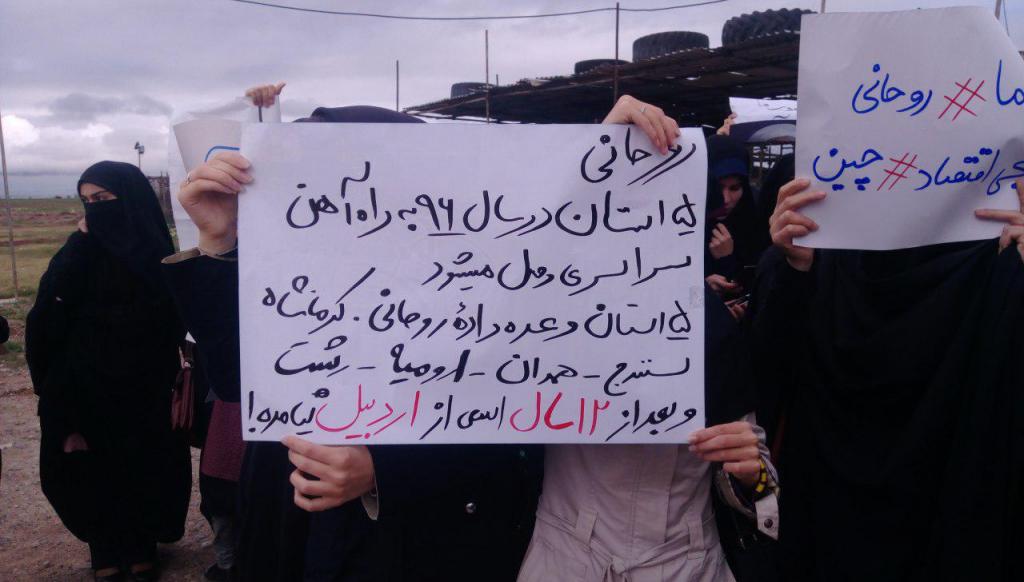 روحانی
۵ استان در سال ۹۶ به راه آهن
سراسری وصل میشود
۵ استان وعده دادهٔ روحانی. کرمانشاه
سنندج - همدان - ارومیه - رشت
و بعد از ۱۲ سال اسمی از اردبیل نیامده!
ما # روحانی
اقتصاد # چین